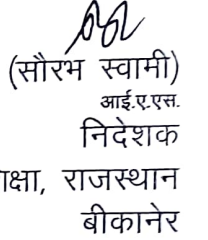 (सौरभ स्वामी)
आई.ए.एस.
निदेशक
राजस्थान
बीकानेर